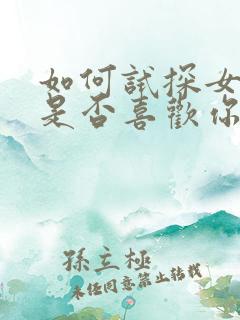 如何試探女
是否喜歡你
孫立極
未经同意禁止转载